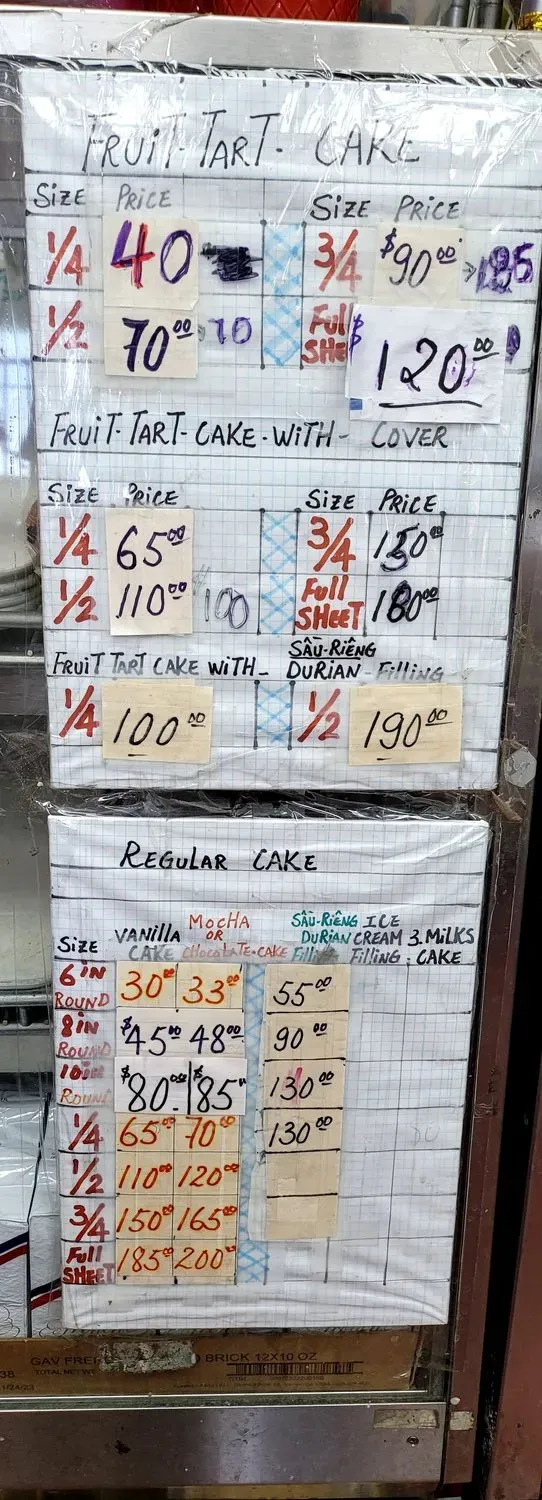 FRUIT-TART- CAKE
SIZE PRICE SIZE PRICE
1/4 40 3/4 $90.00
1/2 70.00 70 Full SHEET $120.00
FRUIT-TART-CAKE-WITH- COVER
SIZE PRICE SIZE PRICE
1/4 65.00 3/4 150.00
1/2 110.00 $100 Full SHEET 180.00
SÂU-RIÊNG
FRUIT TART CAKE WITH- DURIAN-Filling
1/4 100.00 1/2 190.00
REGULAR CAKE
SIZE VANILLA CAKE MOCHA OR CHOCOLATE-CAKE SÂU-RIÊNG DURIAN Filling ICE CREAM Filling 3.MILKS CAKE
6 IN ROUND 30.00 33.00 55.00
8 IN ROUND $45.00 48.00 90.00
10 IN ROUND $80.00 $85.00 130.00
1/4 65.00 70.00 130.00
1/2 110.00 120.00
3/4 150.00 165.00
Full SHEET 185.00 200.00
BRICK 12X10 OZ
TOTAL NET